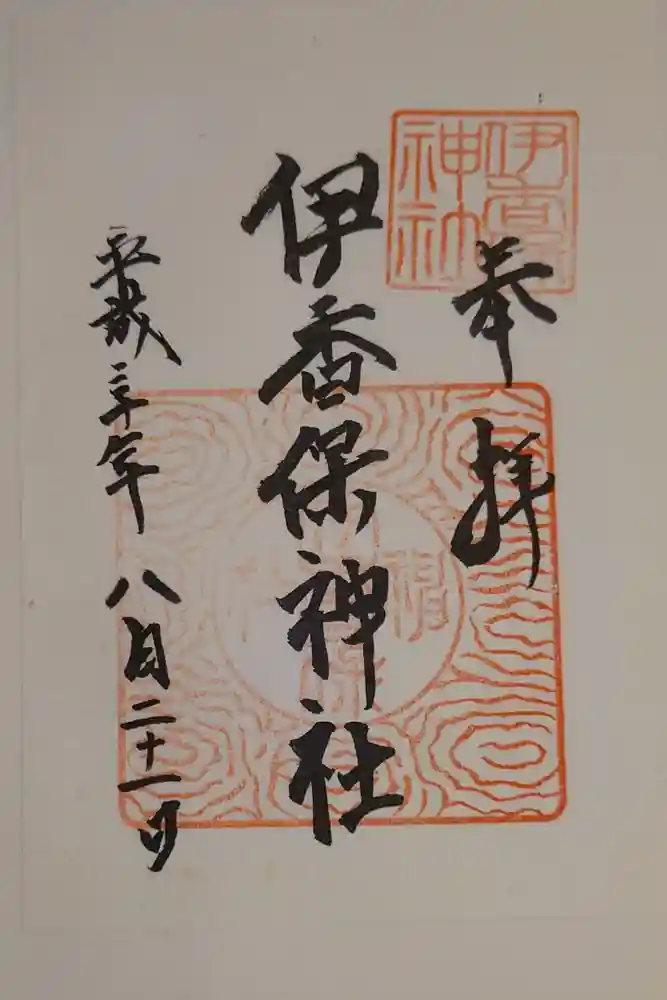 奉拝
伊香保
神社
伊香保神社
平成三十年八月二十一日